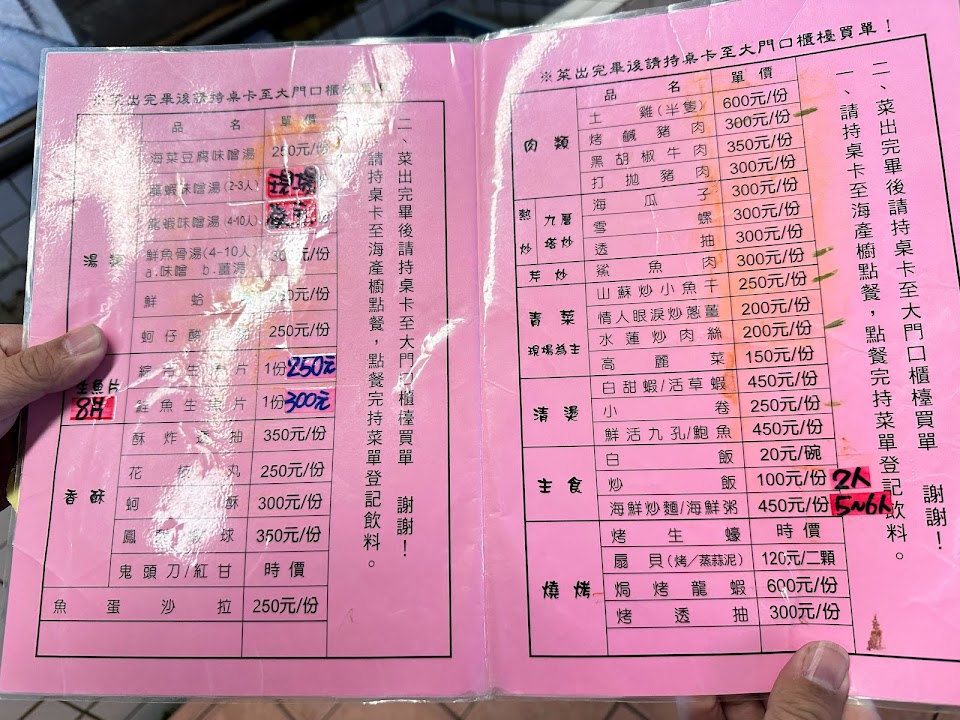 ※菜出完畢後請持桌卡至大門口櫃檯買單！
品名 單價
湯
海菜豆腐味噌湯 250元/份
龍蝦味噌湯(2-3人) 現場
龍蝦味噌湯(4-10人)
鮮魚骨湯(4-10人) 元/份
a.味噌 b.薑湯
鮮蛤 250元/份
蚵仔 250元/份
生魚片
8片
綜合生魚片 1份250元
鮭魚生魚片 1份300元
香酥
酥炸透抽 350元/份
花枝丸 250元/份
蚵酥 300元/份
鳳 球 350元/份
鬼頭刀/紅甘 時價
魚蛋沙拉 250元/份
二、菜出完畢後請持桌卡至大門口櫃檯買單 謝謝！
請持桌卡至海產櫥點餐，點餐完持菜單登記飲料。
※菜出完畢後請持桌卡至大門口櫃檯買單！
品名 單價
肉類
土雞(半隻) 600元/份
烤鹹豬肉 300元/份
黑胡椒牛肉 350元/份
打拋豬肉 300元/份
熱炒 九層塔炒
海瓜子 300元/份
雪螺 300元/份
透抽 300元/份
芹炒 鯊魚肉 300元/份
青菜
現場為主
山蘇炒小魚干 250元/份
情人眼淚炒蔥薑 200元/份
水蓮炒肉絲 200元/份
高麗菜 150元/份
清燙
白甜蝦/活草蝦 450元/份
小卷 250元/份
鮮活九孔/鮑魚 450元/份
主食
白飯 20元/碗
炒飯 100元/份 2人
海鮮炒麵/海鮮粥 450元/份 5~6人
燒烤
烤生蠔 時價
扇貝(烤/蒸蒜泥) 120元/二顆
焗烤龍蝦 600元/份
烤透抽 300元/份
二、菜出完畢後請持桌卡至大門口櫃檯買單 謝謝！
一、請持桌卡至海產櫥點餐，點餐完持菜單登記飲料。